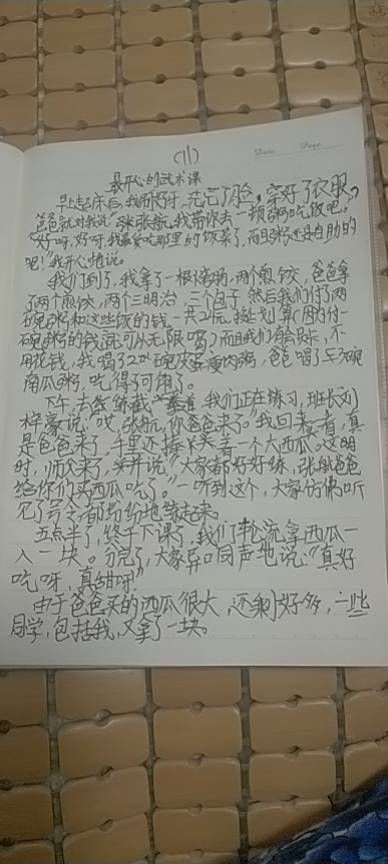 (11)
最开心的武术课
早上起床后,我刷了牙,洗完了脸,穿好了衣服,
爸爸就对我说:“张张航,我带你去一顿粥吃饭吧。”
“好呀,好呀,我最爱吃那里的饭菜了,而且粥还是自助的
吧!”我开心地说。
我们到了,我拿了一根,两个煎饺,爸爸拿
了两个煎饺,两个三明治,三个包子,然后我们付了两
碗粥和这些饭的钱,一共21元,挺划算(因为付一
碗粥的钱就可以无限喝)而且我们有会员卡,不
用花钱,我喝了2碗皮蛋瘦肉粥,爸爸喝了3碗
南瓜粥,吃得可饱了。
下午,去练,我们正在练习,班长刘
梓豪说:“哎,张航,你爸爸来了。”我回头看,真
是爸爸来了,手里还捧着一个大西瓜。这时
时,师父来了,说:“大家都好好练,张航爸爸
给你们买西瓜吃了。”一听到这个,大家仿佛听
见了,都纷纷地练起来。
五点半了,终于下课了,我们轮流拿西瓜一
人一块。分完了,大家异口同声地说:“真好
吃呀,真甜呀!”
由于爸爸买的西瓜很大,还剩好多,一些
同学,包括我,又拿了一块。